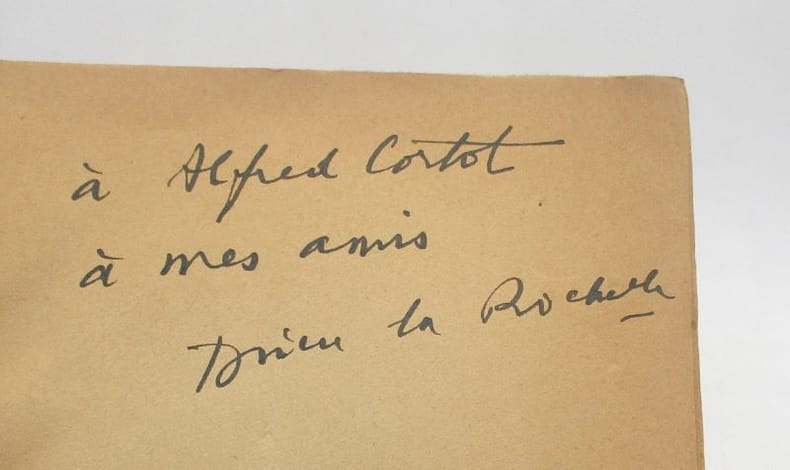 à Alfred Cortot
à mes amis
Drieu la Rochelle